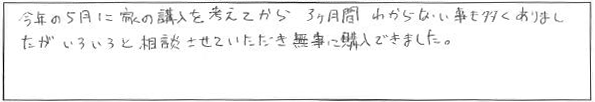 今年の5月に家の購入を考えてから 3ヶ月間 わからない事も多くありまし
たが いろいろと相談させていただき無事に購入できました。